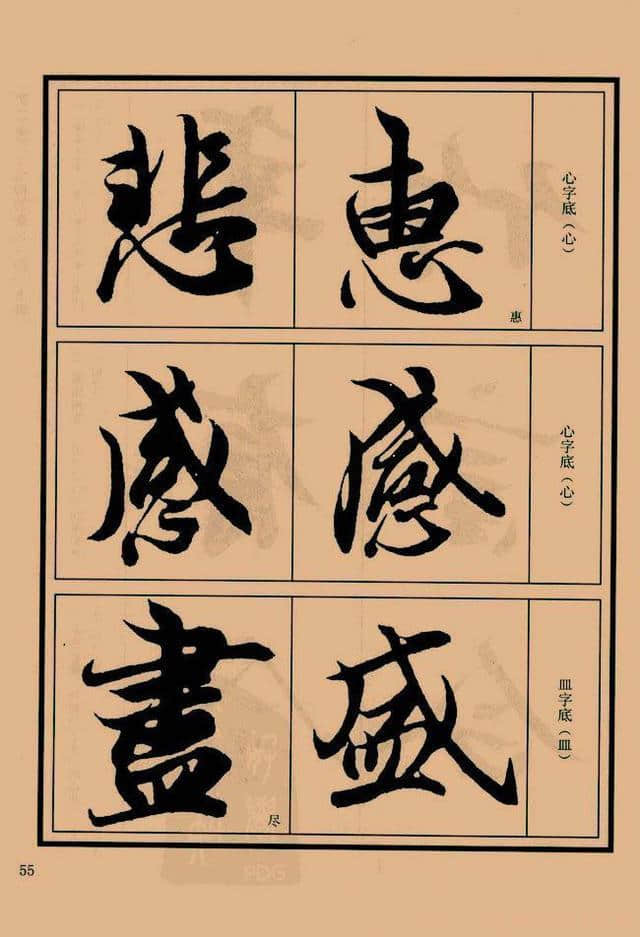 心字底（心）
恵
惠
悲
心字底（心）
感
感
皿字底（皿）
盛
盡
尽
55
PDG